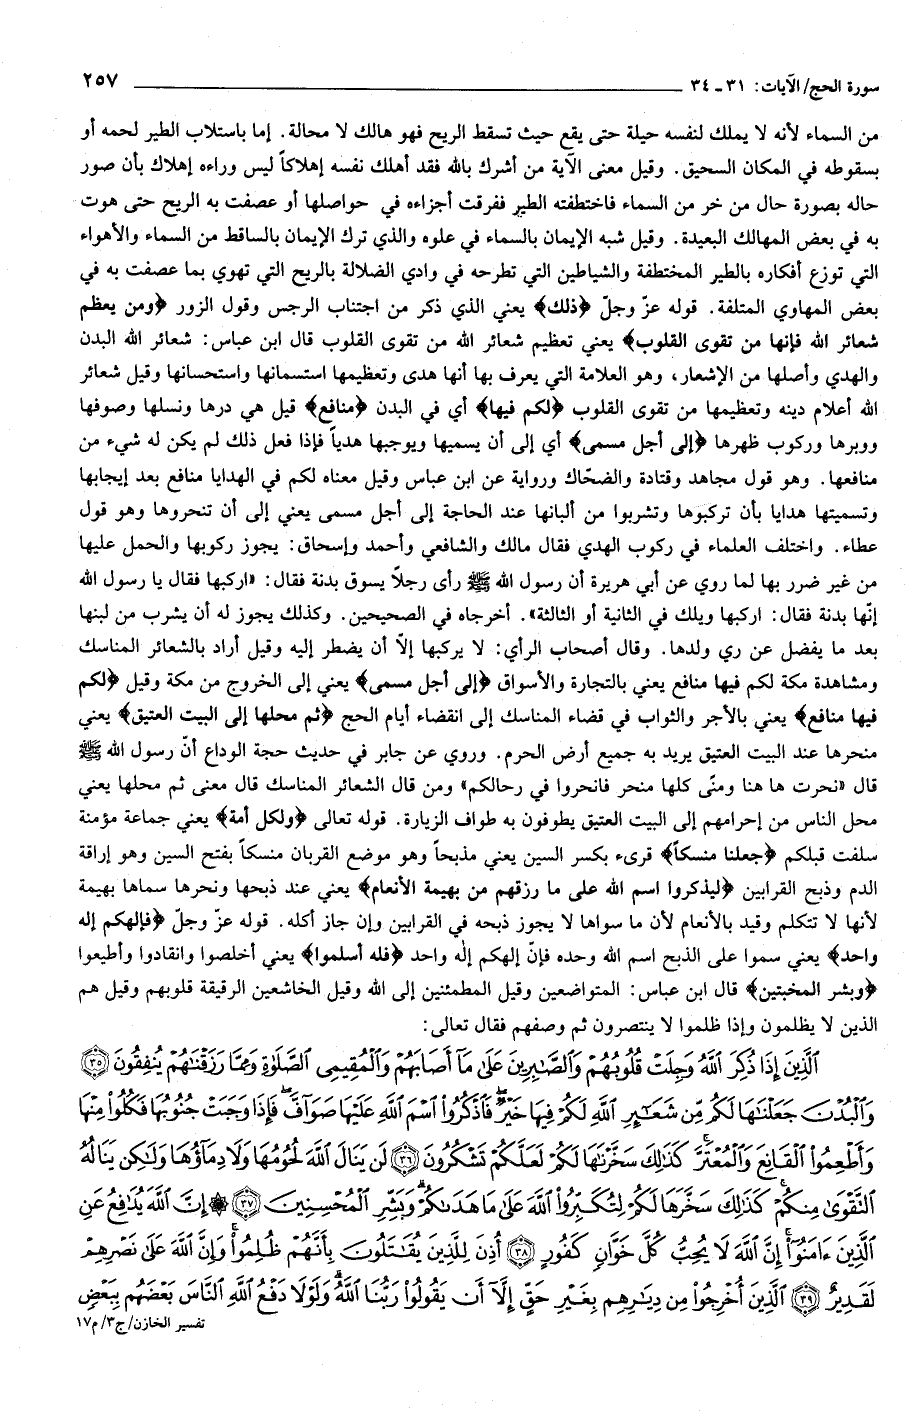 سورة الحج/ الآيات: ٣١ ـ ٣٤ ٢٥٧
من السماء لأنه لا يملك لنفسه حيلة حتى يقع حيث تسقط الريح فهو هالك لا محالة. إما باستلاب الطير لحمه أو
بسقوطه في المكان السحيق. وقيل معنى الآية من أشرك بالله فقد أهلك نفسه إهلاكاً ليس وراءه إهلاك بأن صور
حاله بصورة حال من خر من السماء فاختطفته الطير ففرقت أجزاءه في حواصلها أو عصفت به الريح حتى هوت
به في بعض المهالك البعيدة. وقيل شبه الإيمان بالسماء في علوه والذي ترك الإيمان بالساقط من السماء والأهواء
التي توزع أفكاره بالطير المختطفة والشياطين التي تطرحه في وادي الضلالة بالريح التي تهوي بما عصفت به في
بعض المهاوي المتلفة. قوله عزّ وجلّ ﴿ذلك﴾ يعني الذي ذكر من اجتناب الرجس وقول الزور ﴿ومن يعظم
شعائر الله فإنها من تقوى القلوب﴾ يعني تعظيم شعائر الله من تقوى القلوب قال ابن عباس: شعائر الله البدن
والهدي وأصلها من الإشعار، وهو العلامة التي يعرف بها أنها هدى وتعظيمها استسمانها واستحسانها وقيل شعائر
الله أعلام دينه وتعظيمها من تقوى القلوب ﴿لكم فيها﴾ أي في البدن ﴿منافع﴾ قيل هي درها ونسلها وصوفها
ووبرها وركوب ظهرها ﴿إلى أجل مسمى﴾ أي إلى أن يسميها ويوجبها هدياً فإذا فعل ذلك لم يكن له شيء من
منافعها. وهو قول مجاهد وقتادة والضحّاك ورواية عن ابن عباس وقيل معناه لكم في الهدايا منافع بعد إيجابها
وتسميتها هدايا بأن تركبوها وتشربوا من ألبانها عند الحاجة إلى أجل مسمى يعني إلى أن تنحروها وهو قول
عطاء. واختلف العلماء في ركوب الهدي فقال مالك والشافعي وأحمد وإسحاق: يجوز ركوبها والحمل عليها
من غير ضرر بها لما روي عن أبي هريرة أن رسول الله ﷺ رأى رجلاً يسوق بدنة فقال: «اركبها فقال يا رسول الله
إنّها بدنة فقال: اركبها ويلك في الثانية أو الثالثة». أخرجاه في الصحيحين. وكذلك يجوز له أن يشرب من لبنها
بعد ما يفضل عن ري ولدها. وقال أصحاب الرأي: لا يركبها إلاّ أن يضطر إليه وقيل أراد بالشعائر المناسك
ومشاهدة مكة لكم فيها منافع يعني بالتجارة والأسواق ﴿إلى أجل مسمى﴾ يعني إلى الخروج من مكة وقيل ﴿لكم
فيها منافع﴾ يعني بالأجر والثواب في قضاء المناسك إلى انقضاء أيام الحج ﴿ثم محلها إلى البيت العتيق﴾ يعني
منحرها عند البيت العتيق يريد به جميع أرض الحرم. وروي عن جابر في حديث حجة الوداع أنّ رسول الله ﷺ
قال «نحرت ها هنا ومنّى كلها منحر فانحروا في رحالكم» ومن قال الشعائر المناسك قال معنى ثم محلها يعني
محل الناس من إحرامهم إلى البيت العتيق يطوفون به طواف الزيارة. قوله تعالى ﴿ولكل أمة﴾ يعني جماعة مؤمنة
سلفت قبلكم ﴿جعلنا منسكاً﴾ قرىء بكسر السين يعني مذبحاً وهو موضع القربان منسكاً بفتح السين وهو إراقة
الدم وذبح القرابين ﴿ليذكروا اسم الله على ما رزقهم من بهيمة الأنعام﴾ يعني عند ذبحها ونحرها سماها بهيمة
لأنها لا تتكلم وقيد بالأنعام لأن ما سواها لا يجوز ذبحه في القرابين وإن جاز أكله. قوله عزّ وجلّ ﴿فإلهكم إله
واحد﴾ يعني سموا على الذبح اسم الله وحده فإنّ إلهكم إلٰه واحد ﴿فله أسلموا﴾ يعني أخلصوا وانقادوا وأطيعوا
﴿وبشر المخبتين﴾ قال ابن عباس: المتواضعين وقيل المطمئنين إلى الله وقيل الخاشعين الرقيقة قلوبهم وقيل هم
الذين لا يظلمون وإذا ظلموا لا ينتصرون ثم وصفهم فقال تعالى:
ٱلَّذِينَ إِذَا ذُكِرَ ٱللَّهُ وَجِلَتْ قُلُوبُهُمْ وَٱلصَّٰبِرِينَ عَلَىٰ مَآ أَصَابَهُمْ وَٱلْمُقِيمِى ٱلصَّلَوٰةِ وَمِمَّا رَزَقْنَٰهُمْ يُنفِقُونَ ﴿٣٥﴾
وَٱلْبُدْنَ جَعَلْنَٰهَا لَكُم مِّن شَعَٰٓئِرِ ٱللَّهِ لَكُمْ فِيهَا خَيْرٌ ۖ فَٱذْكُرُوا۟ ٱسْمَ ٱللَّهِ عَلَيْهَا صَوَآفَّ ۖ فَإِذَا وَجَبَتْ جُنُوبُهَا فَكُلُوا۟ مِنْهَا
وَأَطْعِمُوا۟ ٱلْقَانِعَ وَٱلْمُعْتَرَّ ۚ كَذَٰلِكَ سَخَّرْنَٰهَا لَكُمْ لَعَلَّكُمْ تَشْكُرُونَ ﴿٣٦﴾ لَن يَنَالَ ٱللَّهَ لُحُومُهَا وَلَا دِمَآؤُهَا وَلَٰكِن يَنَالُهُ
ٱلتَّقْوَىٰ مِنكُمْ ۚ كَذَٰلِكَ سَخَّرَهَا لَكُمْ لِتُكَبِّرُوا۟ ٱللَّهَ عَلَىٰ مَا هَدَىٰكُمْ ۗ وَبَشِّرِ ٱلْمُحْسِنِينَ ﴿٣٧﴾ ۞ إِنَّ ٱللَّهَ يُدَٰفِعُ عَنِ
ٱلَّذِينَ ءَامَنُوٓا۟ ۗ إِنَّ ٱللَّهَ لَا يُحِبُّ كُلَّ خَوَّانٍ كَفُورٍ ﴿٣٨﴾ أُذِنَ لِلَّذِينَ يُقَٰتَلُونَ بِأَنَّهُمْ ظُلِمُوا۟ ۚ وَإِنَّ ٱللَّهَ عَلَىٰ نَصْرِهِمْ
لَقَدِيرٌ ﴿٣٩﴾ ٱلَّذِينَ أُخْرِجُوا۟ مِن دِيَٰرِهِم بِغَيْرِ حَقٍّ إِلَّآ أَن يَقُولُوا۟ رَبُّنَا ٱللَّهُ ۗ وَلَوْلَا دَفْعُ ٱللَّهِ ٱلنَّاسَ بَعْضَهُم بِبَعْضٍ
تفسير الخازن/ ج٣/ م١٧